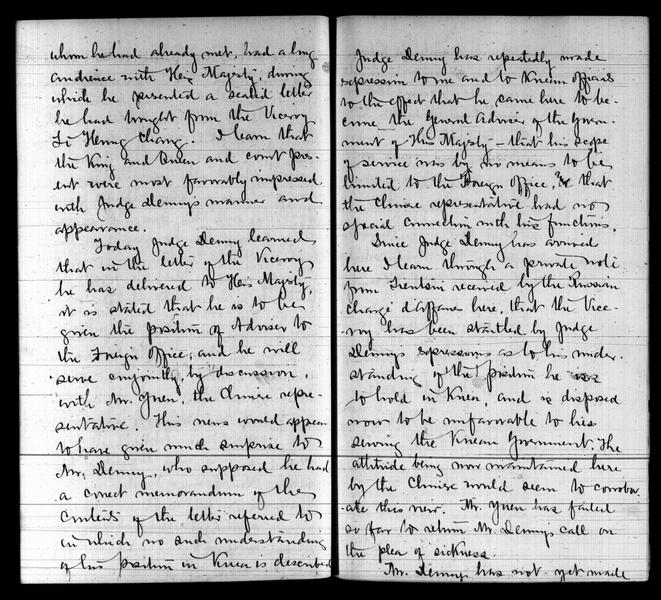 whom he had already met, had a long
audience with His Majesty, during
which he presented a sealed letter
he had brought from the Viceroy
Li Hung Chang. I learn that
the King and Queen and court pres-
ent were most favorably impressed
with Judge Denny's manner and
appearance.
Today Judge Denny learned
that in the letter of the Viceroy
he has delivered to His Majesty,
it is stated that he is to be
given the position of Adviser to
the Foreign Office, and he will
serve conjointly, by discussion,
with Mr. Yuen, the Chinese repre-
sentative. This news would appear
to have given much surprise to
Mr. Denny, who supposed he had
a correct memorandum of the
contents of the letter referred to
in which no such understanding
of his position in Korea is described
Judge Denny has repeatedly made
expression to me and to Korean officials
to the effect that he came here to be-
come the General Adviser of the Govern-
ment of His Majesty - that his scope
of service was by no means to be
limited to the Foreign Office, & that
the Chinese representative had no
special connection with his functions.
Since Judge Denny has arrived
here I learn through a private note
from Tientsin received by the Russian
chargé d'affaires here, that the Vice-
roy has been startled by Judge
Denny's expressions as to his under-
standing of the position he was
to hold in Korea, and is disposed
now to be unfavorable to his
serving the Korean Government. The
attitude being now maintained here
by the Chinese would seem to corrobor-
ate this news. Mr. Yuen has failed
so far to return Mr. Denny's call on
the plea of sickness.
Mr. Denny has not yet made